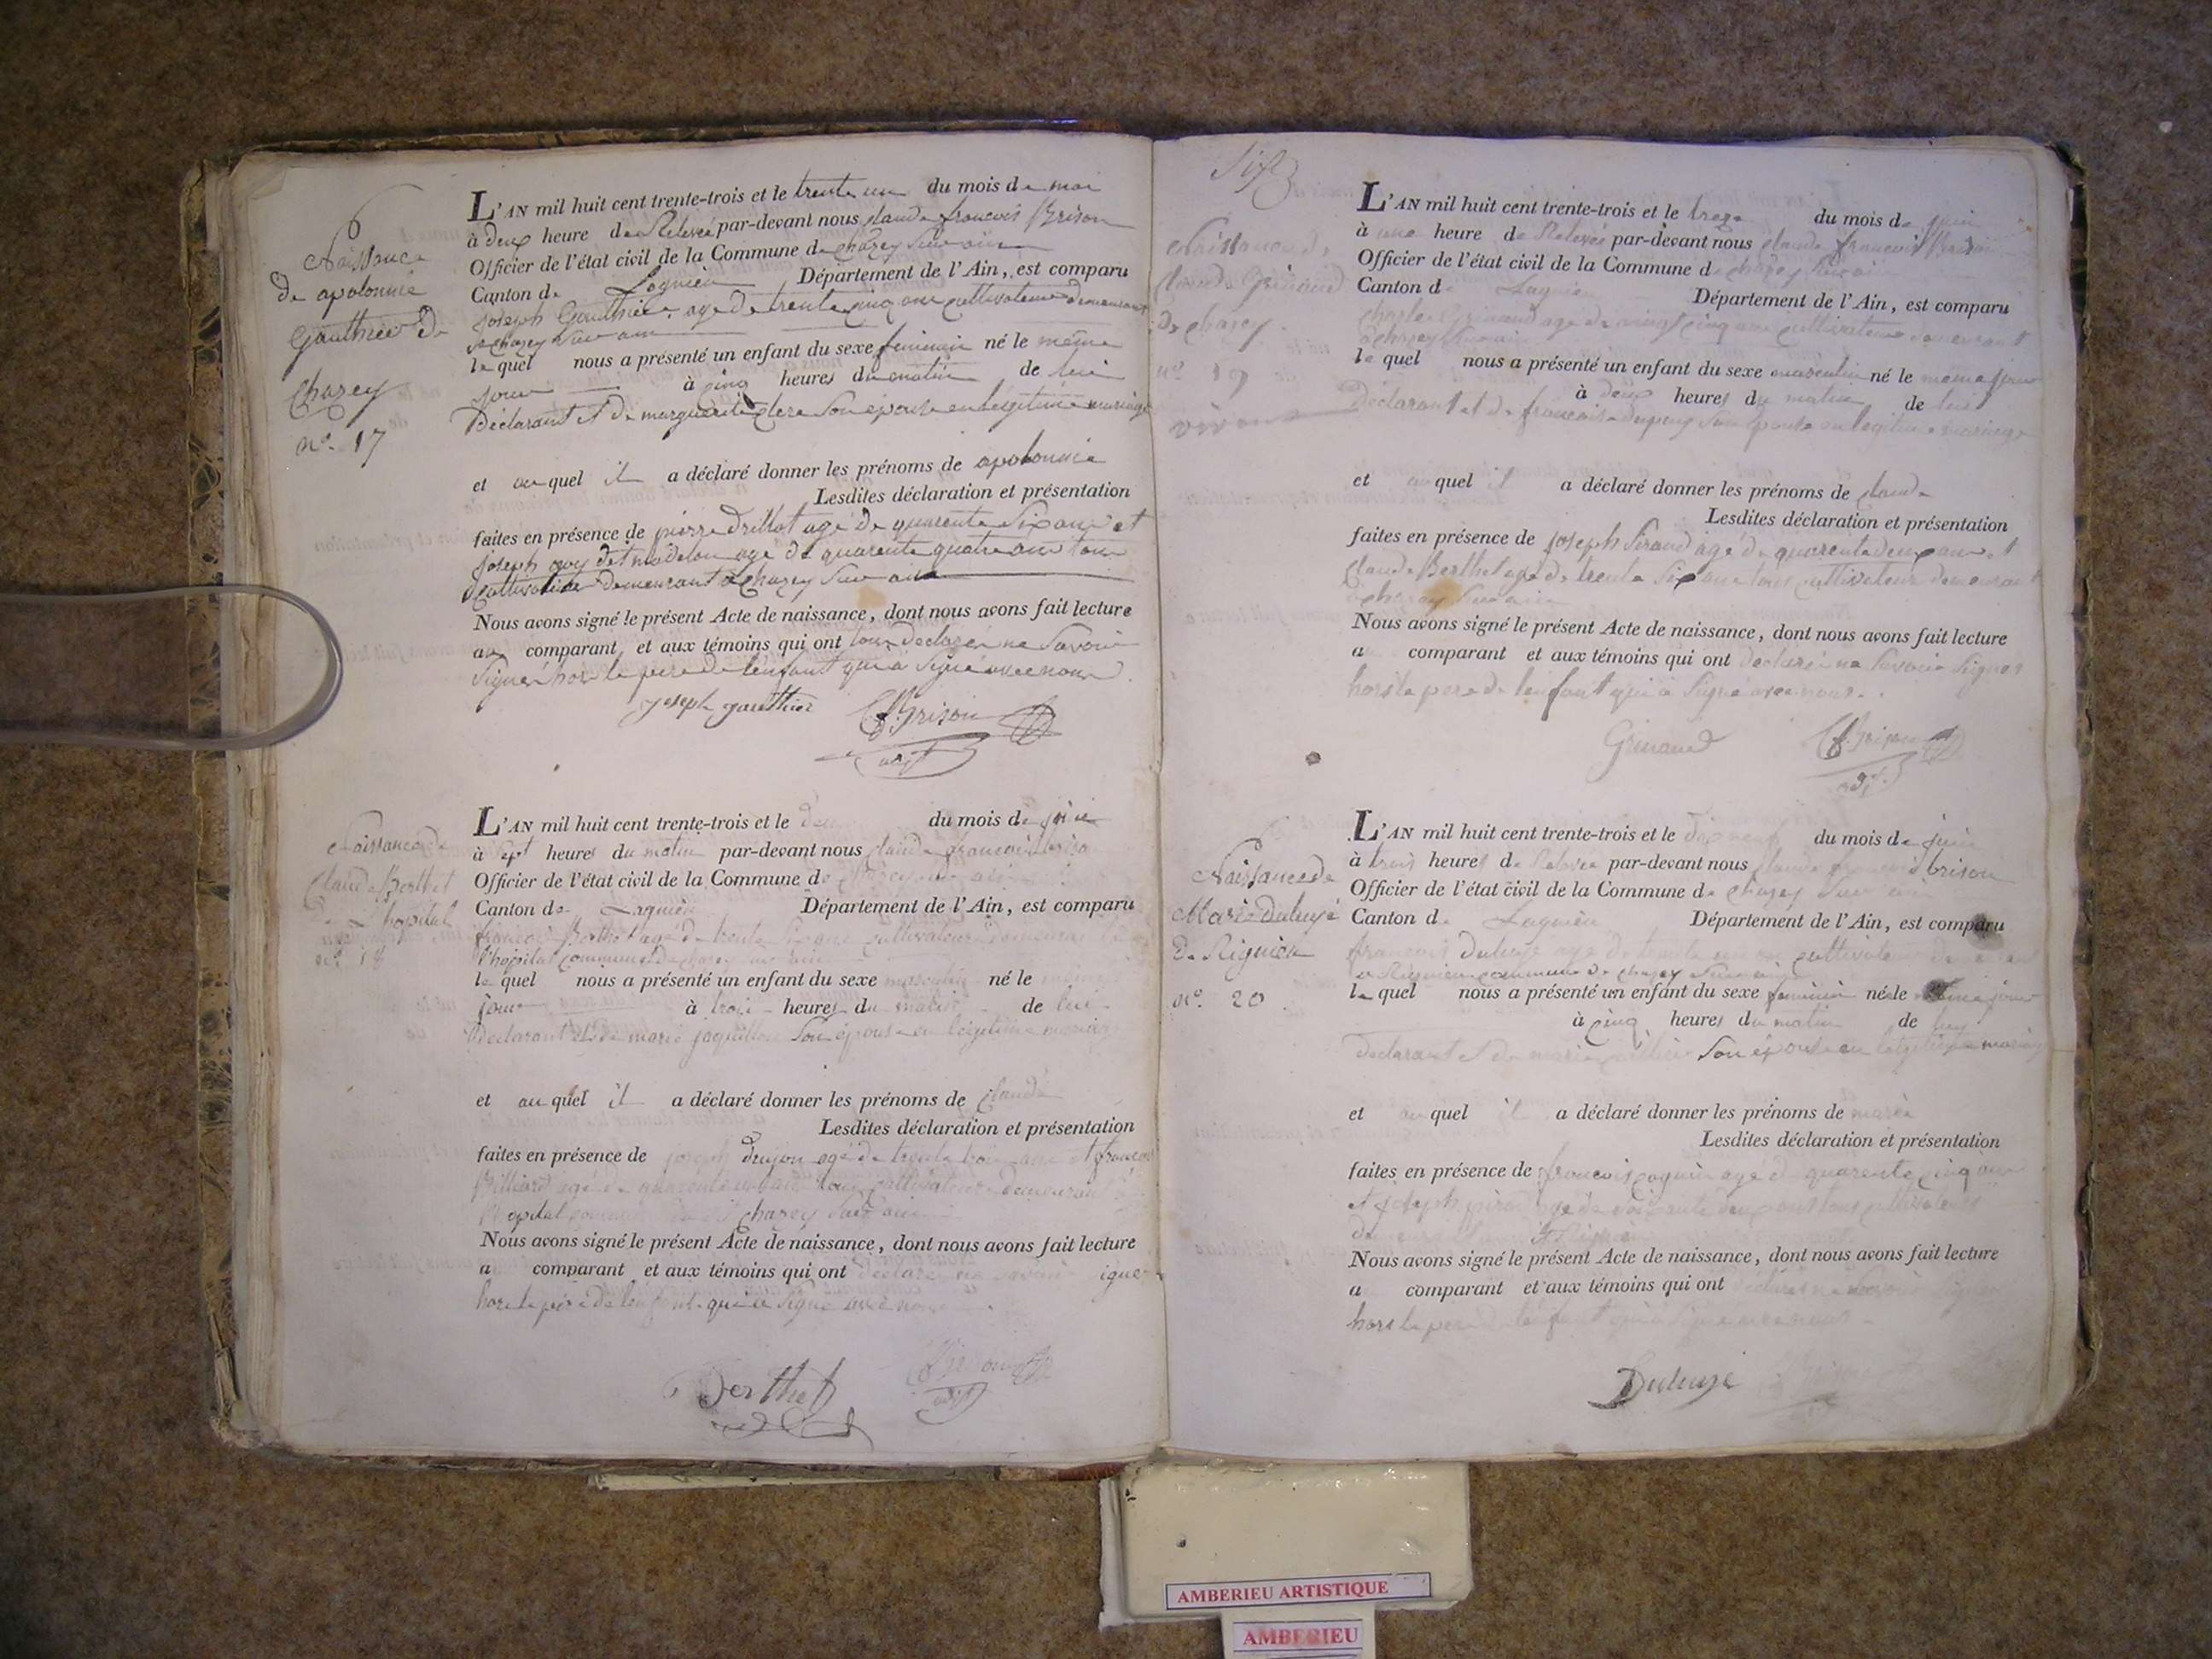 6
Naissance
de apolonnie
Gauthier de
Chazey
n.º 17
L'AN mil huit cent trente-trois et le trente un du mois de mai
à deux heure de Relevée par-devant nous claude francois Brison
Officier de l'état civil de la Commune de chazey sur ain
Canton de Lagnieu Département de l'Ain, est comparu
joseph Gauthier age de trente cinq ans cultivateur demeurant
a chazey sur ain
le quel nous a présenté un enfant du sexe feminin né le même
jour à cinq heures du matin de lui
Déclarant et de marguerite clere son épouse en légitime mariage
et au quel il a déclaré donner les prénoms de apolonnie
Lesdites déclaration et présentation
faites en présence de pierre drillot agé de quarente six ans et
joseph dit madelon age de quarente quatre ans tous
cultivateur demeurant a chazey sur ain
Nous avons signé le présent Acte de naissance, dont nous avons fait lecture
au comparant et aux témoins qui ont tous déclarés ne savoir
signer hors le pere de l'enfant qui a signé avec nous
joseph gauthier Brison
adjt
Naissance de
Claude Berthet
de L'hopital
n.º 18
L'AN mil huit cent trente-trois et le du mois de juin
à sept heures du matin par-devant nous claude francois brison
Officier de l'état civil de la Commune de chazey sur ain
Canton de Lagnieu Département de l'Ain, est comparu
francois Berthet agé de trente ans cultivateur demeurant
l'hopital commune de chazey sur ain
le quel nous a présenté un enfant du sexe masculin né le même
jour à trois heures du matin de lui
Déclarant et de marie jaquillon son épouse en légitime mariage
et au quel il a déclaré donner les prénoms de claude
Lesdites déclaration et présentation
faites en présence de joseph drujon agé de trente trois ans et francois
Billiard agé de quarente ans tous cultivateurs demeurant à
l'hopital commune de chazey sur ain
Nous avons signé le présent Acte de naissance, dont nous avons fait lecture
a comparant et aux témoins qui ont déclaré ne savoir signer
hors le père de l'enfant qui a signé avec nous
Berthet Brison
adjt
Sept
Naissance de
Claude Grinand
de chazey
n.º 19
L'AN mil huit cent trente-trois et le treze du mois de juin
à une heure de Relevée par-devant nous claude francois Brison
Officier de l'état civil de la Commune de chazey sur ain
Canton de Lagnieu Département de l'Ain, est comparu
charles Grinand age de vingt cinq ans cultivateur demeurant
a chazey sur ain
le quel nous a présenté un enfant du sexe masculin né le même jour
à deux heures du matin de lui
Déclarant et de francoise dupuy son épouse en légitime mariage
et au quel il a déclaré donner les prénoms de claude
Lesdites déclaration et présentation
faites en présence de joseph Siraud agé de quarente deux ans et
claude Berthet agé de trente six ans tous cultivateur demeurant
a chazey sur ain
Nous avons signé le présent Acte de naissance, dont nous avons fait lecture
a comparant et aux témoins qui ont déclaré ne savoir signer
hors le pere de l'enfant qui a signé avec nous
Grinand Brison
adjt
Naissance de
Marie
de Rignieu
n.º 20
L'AN mil huit cent trente-trois et le dix neuf du mois de juin
à trois heures de Relevée par-devant nous claude francois brison
Officier de l'état civil de la Commune de chazey sur ain
Canton de Lagnieu Département de l'Ain, est comparu
francois age de trente ans cultivateur demeurant
a Rignieu commune de chazey sur ain
le quel nous a présenté un enfant du sexe feminin né le même jour
à cinq heures du matin de luy
Déclarant et de marie son épouse en légitime mariage
et au quel il a déclaré donner les prénoms de marie
Lesdites déclaration et présentation
faites en présence de francois age de quarente cinq ans
et joseph agé de soixante deux ans tous cultivateurs
Nous avons signé le présent Acte de naissance, dont nous avons fait lecture
a comparant et aux témoins qui ont déclaré ne savoir
hors le pere de l'enfant qui a signé avec nous
AMBERIEU ARTISTIQUE
AMBERIEU